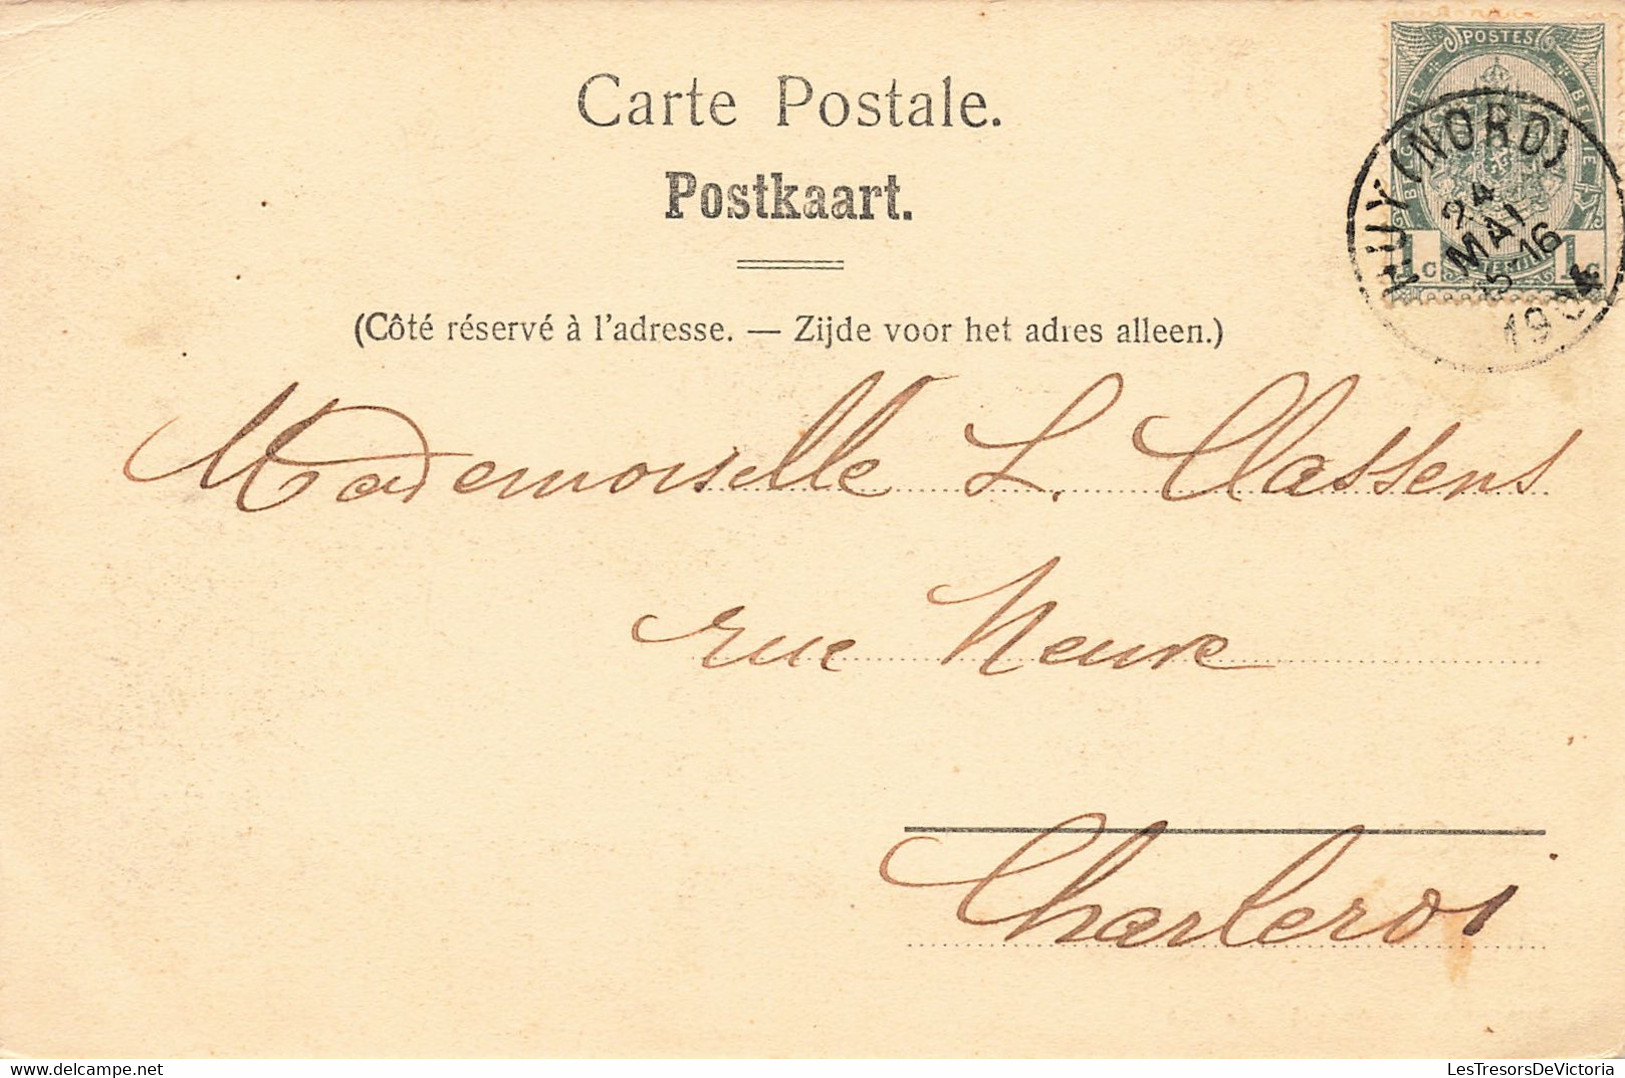 Carte Postale.
Postkaart.
(Côté réservé à l'adresse. — Zijde voor het adres alleen.)
POSTES
BELGIQUE BELGIE
1c 1c
HUY (NORD)
24
MAI
15-16
1904
Mademoiselle L. Classens
rue Neuve
Charleroi
LesTresorsDeVictoria